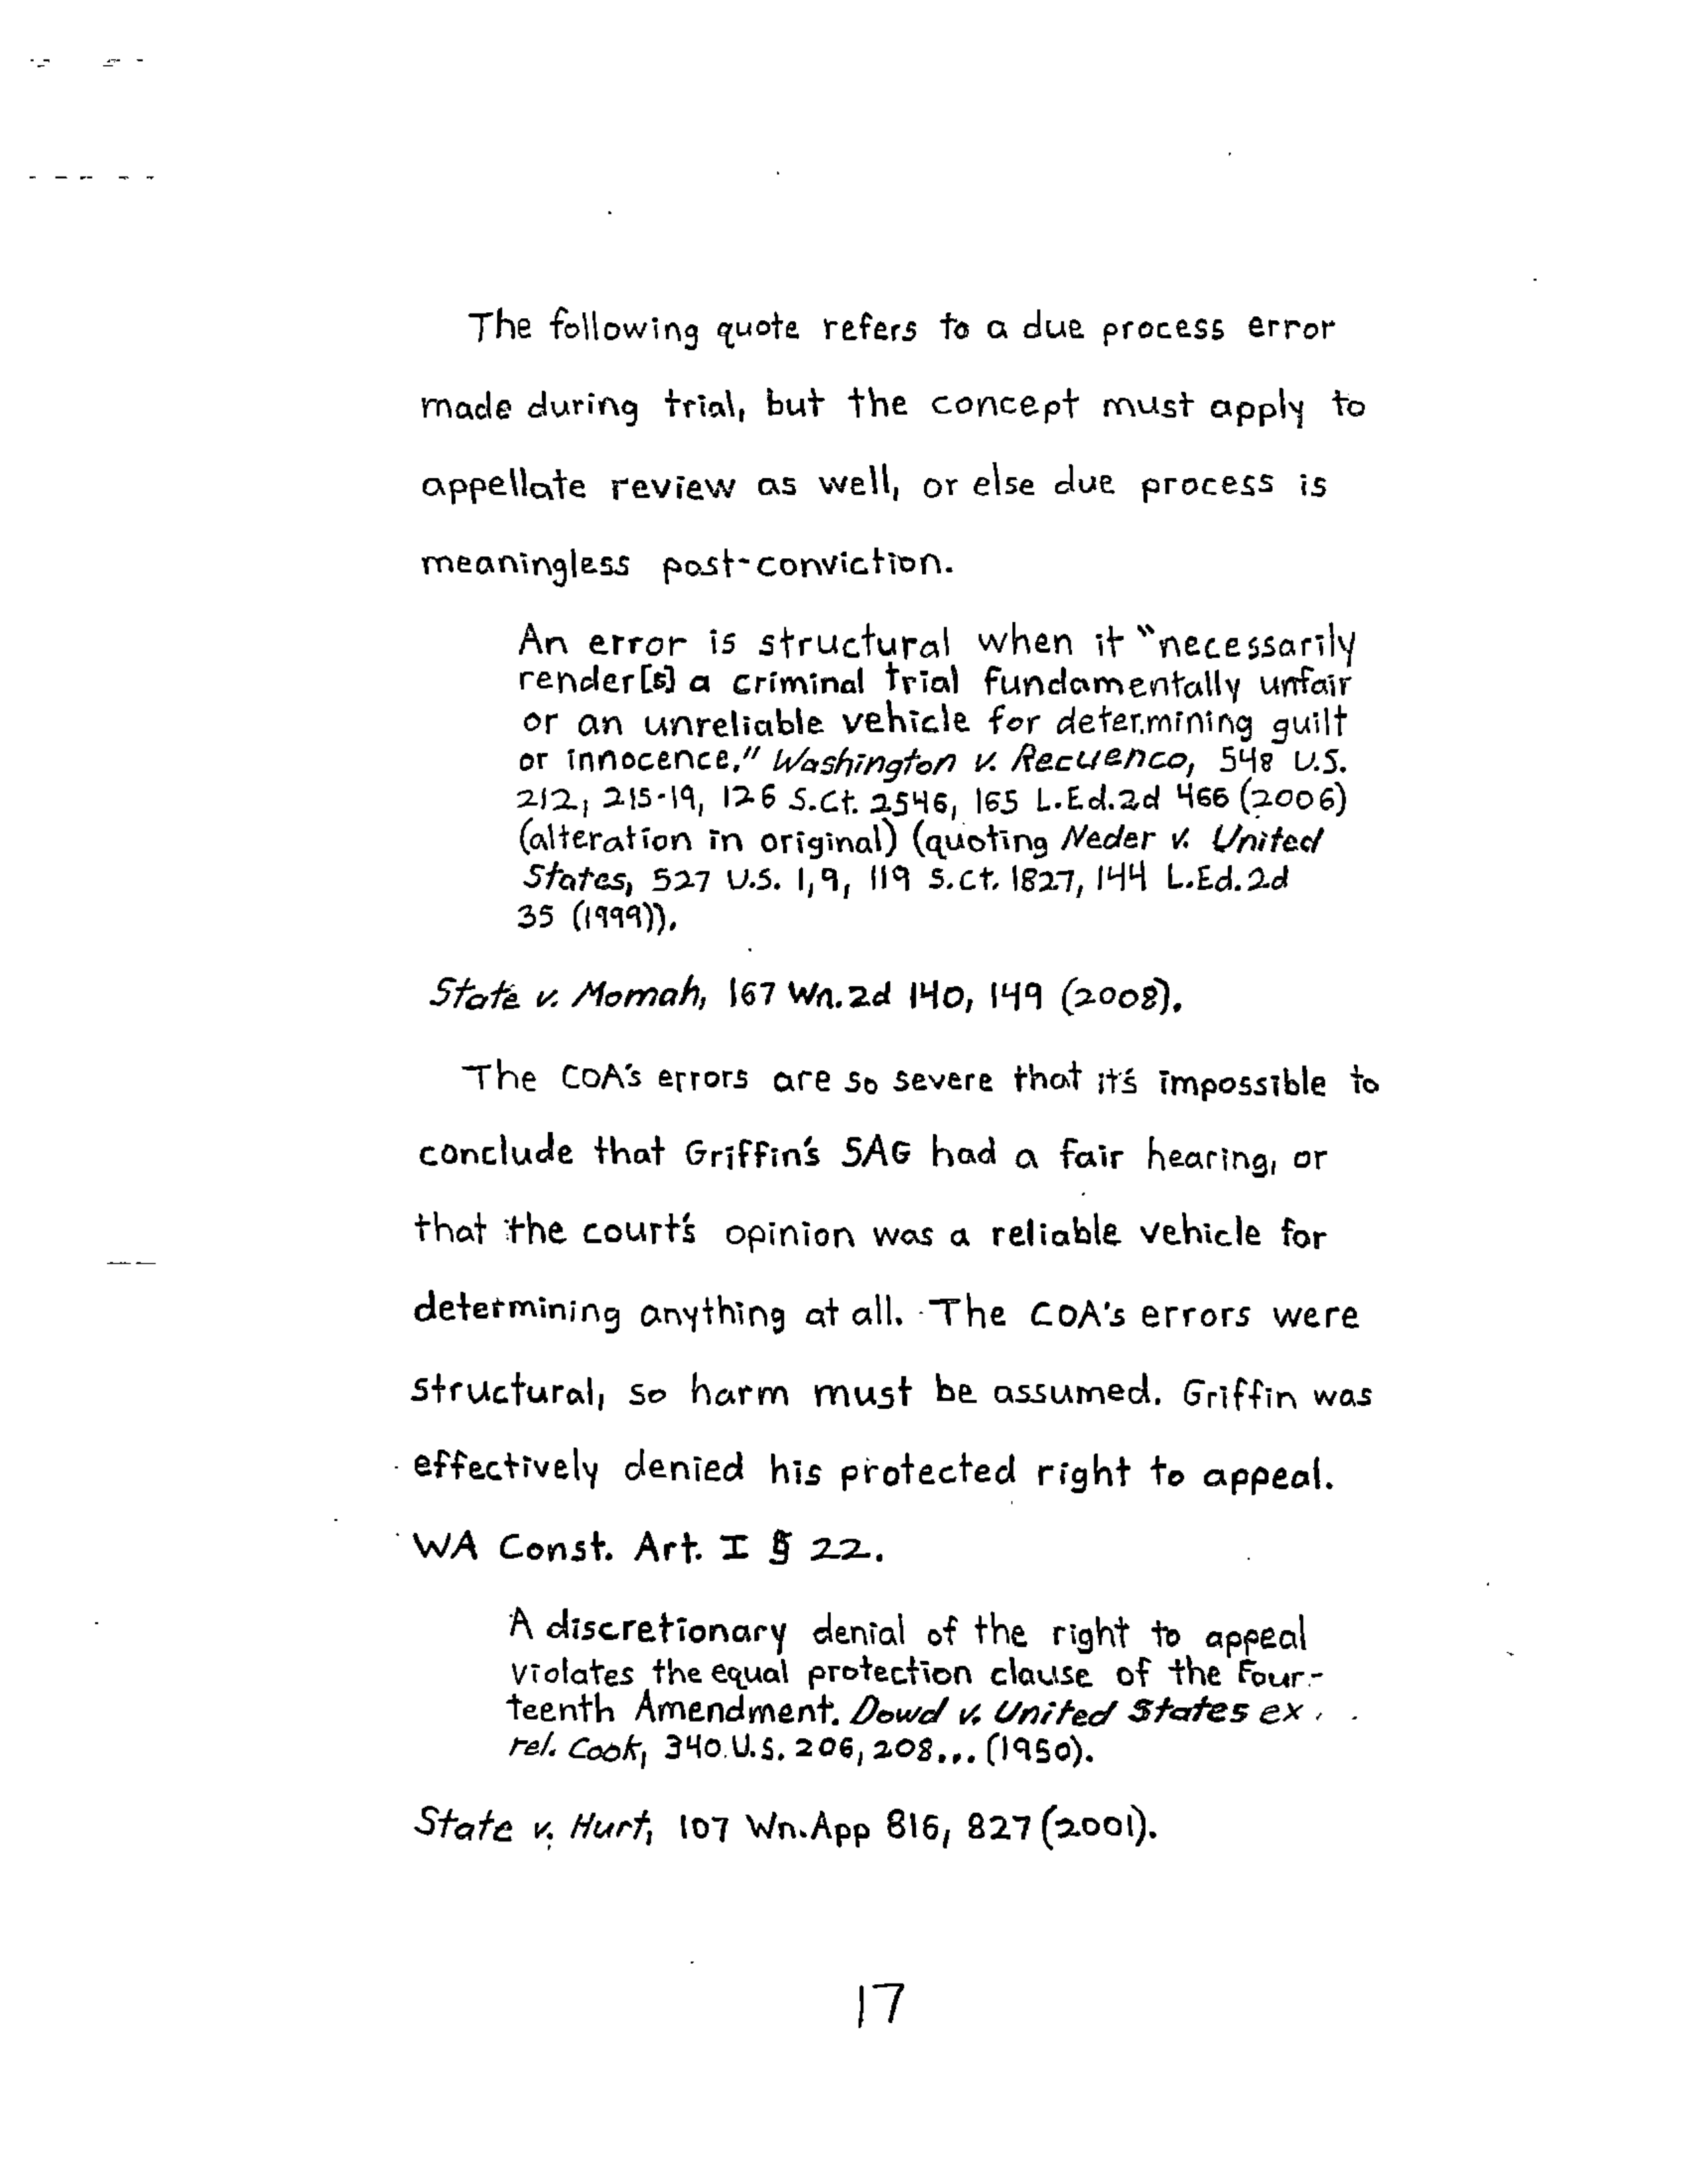 The following quote refers to a due process error
made during trial, but the concept must apply to
appellate review as well, or else due process is
meaningless post-conviction.
An error is structural when it "necessarily
render[s] a criminal trial fundamentally unfair
or an unreliable vehicle for determining guilt
or innocence." Washington v. Recuenco, 548 U.S.
212, 215-19, 126 S.Ct. 2546, 165 L.Ed.2d 466 (2006)
(alteration in original) (quoting Neder v. United
States, 527 U.S. 1, 9, 119 S.Ct. 1827, 144 L.Ed.2d
35 (1999)).
State v. Momah, 167 Wn.2d 140, 149 (2008).
The COA's errors are so severe that it's impossible to
conclude that Griffin's SAG had a fair hearing, or
that the court's opinion was a reliable vehicle for
determining anything at all. The COA's errors were
structural, so harm must be assumed. Griffin was
effectively denied his protected right to appeal.
WA Const. Art. I § 22.
A discretionary denial of the right to appeal
violates the equal protection clause of the Four-
teenth Amendment. Dowd v. United States ex
rel. Cook, 340 U.S. 206, 208... (1950).
State v. Hurt, 107 Wn.App 816, 827 (2001).
17